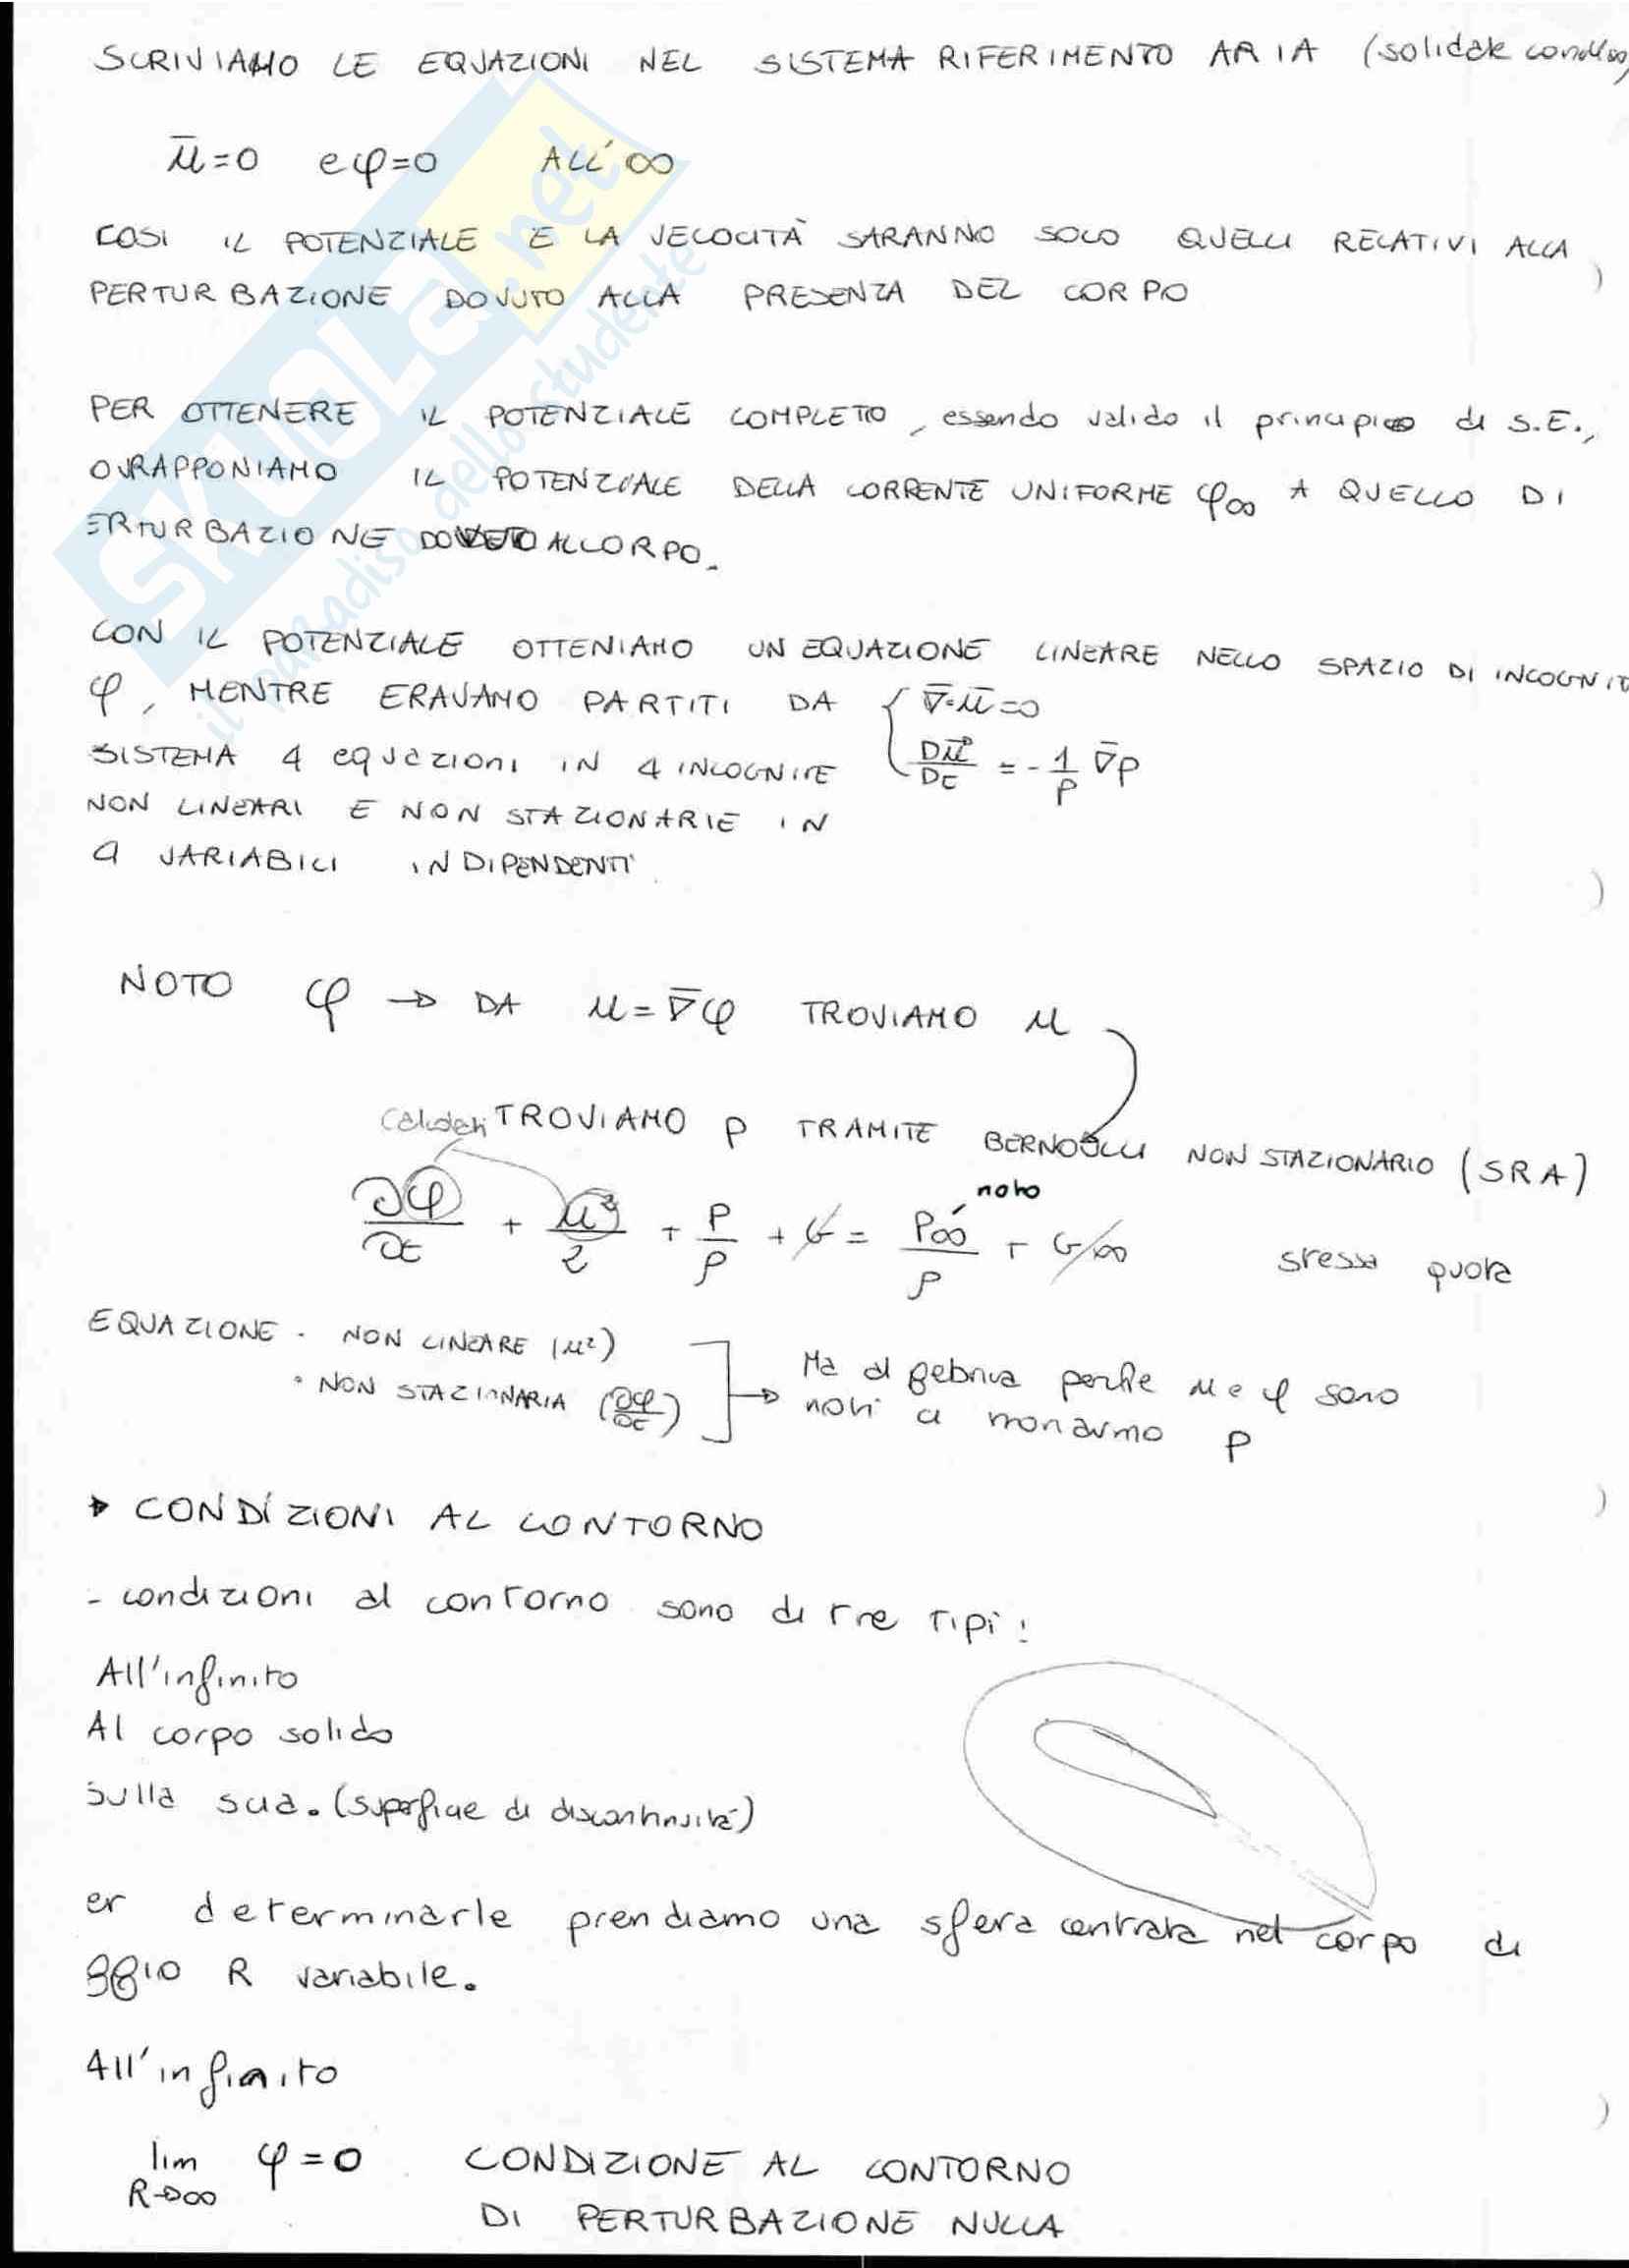 SCRIVIAMO LE EQUAZIONI NEL SISTEMA RIFERIMENTO ARIA (solidale con
ū=0 e φ=0 ALL'∞
COSI IL POTENZIALE E LA VELOCITÀ SARANNO SOLO QUELLI RELATIVI ALLA
PERTURBAZIONE DOVUTO ALLA PRESENZA DEL CORPO
PER OTTENERE IL POTENZIALE COMPLETO, essendo valido il principio di S.E.,
OVRAPPONIAMO IL POTENZIALE DELLA CORRENTE UNIFORME φ∞ A QUELLO DI
ERTURBAZIONE DOVUTO AL CORPO.
CON IL POTENZIALE OTTENIAMO UN EQUAZIONE LINEARE NELLO SPAZIO DI INCOGNIT
φ, MENTRE ERAVAMO PARTITI DA { ∇̄·ū=0
SISTEMA 4 equazioni IN 4 INCOGNITE Dū/Dt = - 1/ρ ∇̄p
NON LINEARI E NON STAZIONARIE IN
4 VARIABILI INDIPENDENTI
NOTO φ → DA u = ∇̄φ TROVIAMO u
TROVIAMO P TRAMITE BERNOULLI NON STAZIONARIO (SRA)
noto
∂φ/∂t + u²/2 + P/ρ + G = P∞/ρ + G∞ stessa quota
EQUAZIONE · NON LINEARE (u²)
· NON STAZIONARIA (∂φ/∂t)
Ma algebrica perche u e φ sono
noti ci troviamo P
▸ CONDIZIONI AL CONTORNO
- condizioni al contorno sono di tre tipi:
All'infinito
Al corpo solido
Sulla scia. (superficie di discontinuità)
er determinarle prendiamo una sfera centrata nel corpo di
ggio R variabile.
All'infinito
lim R→∞ φ=0 CONDIZIONE AL CONTORNO
DI PERTURBAZIONE NULLA
SKUOLA.net
il paradiso dello studente